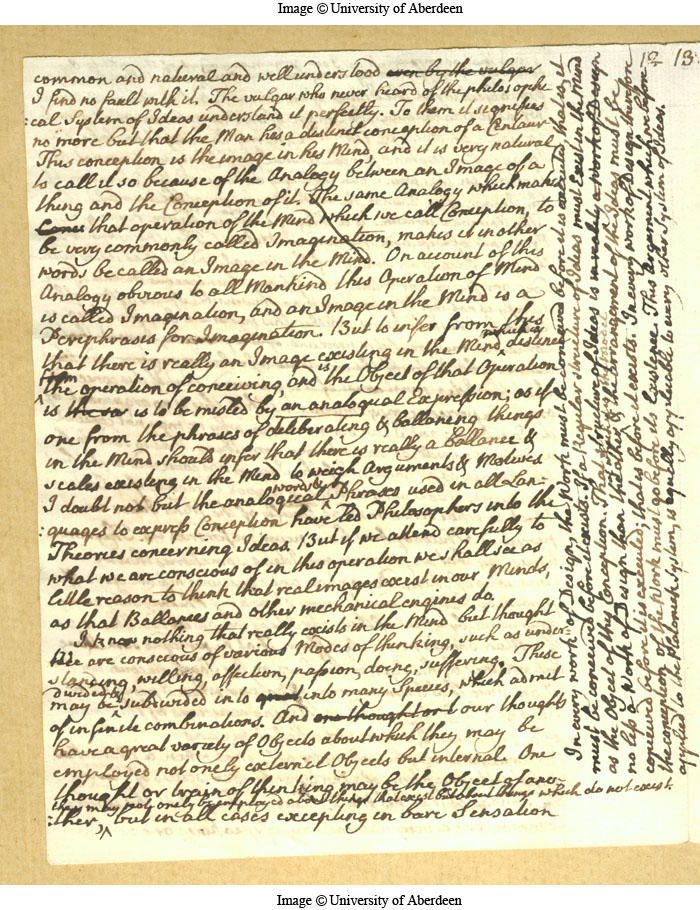 Image © University of Aberdeen
12 13
common and natural and well understood even by the vulgar
I find no fault with it. The vulgar who never heard of the philosophi
:cal System of Ideas understand it perfectly. To them it signifies
no more but that the Man has a distinct conception of a Centaur
This conception is the image in his Mind, and it is very natural
to call it so because of the Analogy between an Image of a
thing and the Conception of it. The same Analogy which makes
that operation of the Mind which we call Conception, to
be very commonly called Imagination, makes it in other
words be called an Image in the Mind. On account of this
Analogy obvious to all Mankind this Operation of Mind
is called Imagination, and an Image in the Mind is a
Periphrasis for Imagination. But to infer from this
that there is really an Image existing in the Mind, which is distinct
from
the operation of conceiving, and is the Object of that Operation
is is to be misled by an analogical Expression; as if
one from the phrases of deliberating & ballancing things
in the Mind should infer that there is really a ballance &
scales existing in the Mind to weigh Arguments & Motives
words &
I doubt not but the analogical Phrases used in all Lan-
:quages to express Conception have led Philosophers into the
Theories concerning Ideas. But if we attend carefully to
what we are conscious of in this operation we shall see as
little reason to think that real images exist in our Minds,
as that Ballances and other mechanical engines do.
I know nothing that really exists in the Mind but thought
We are conscious of various Modes of thinking, such as under-
standing, willing, affection, passion, doing, suffering. These
may be divided & subdivided into into many Species, which admit
of infinite combinations. And one thought or t our thoughts
have a great variety of Objects about which they may be
employed not onely external Objects but internal. One
thought or train of thinking may be the Object of ano-
they may not onely be employed about things that exist but about things which do not exist.
:ther, but in all cases excepting in bare Sensation
In every work of Design, the Work must be conceived before it is executed, that is, it
must be conceived before it exists. If a Regular structure of Ideas must Exist in the Mind
as the Object of this Conception. That structure of Ideas is in reality a Work of Design
no less a Work of Design than the other; & the arrangement of the Ideas must be
conceived before it is executed; that is before it exists. In every work of design therefore
the conception of the Work must go before its Existence. This Argument which we before
applied to the Platonick System, is equally applicable to every other System of Ideas.
Image © University of Aberdeen